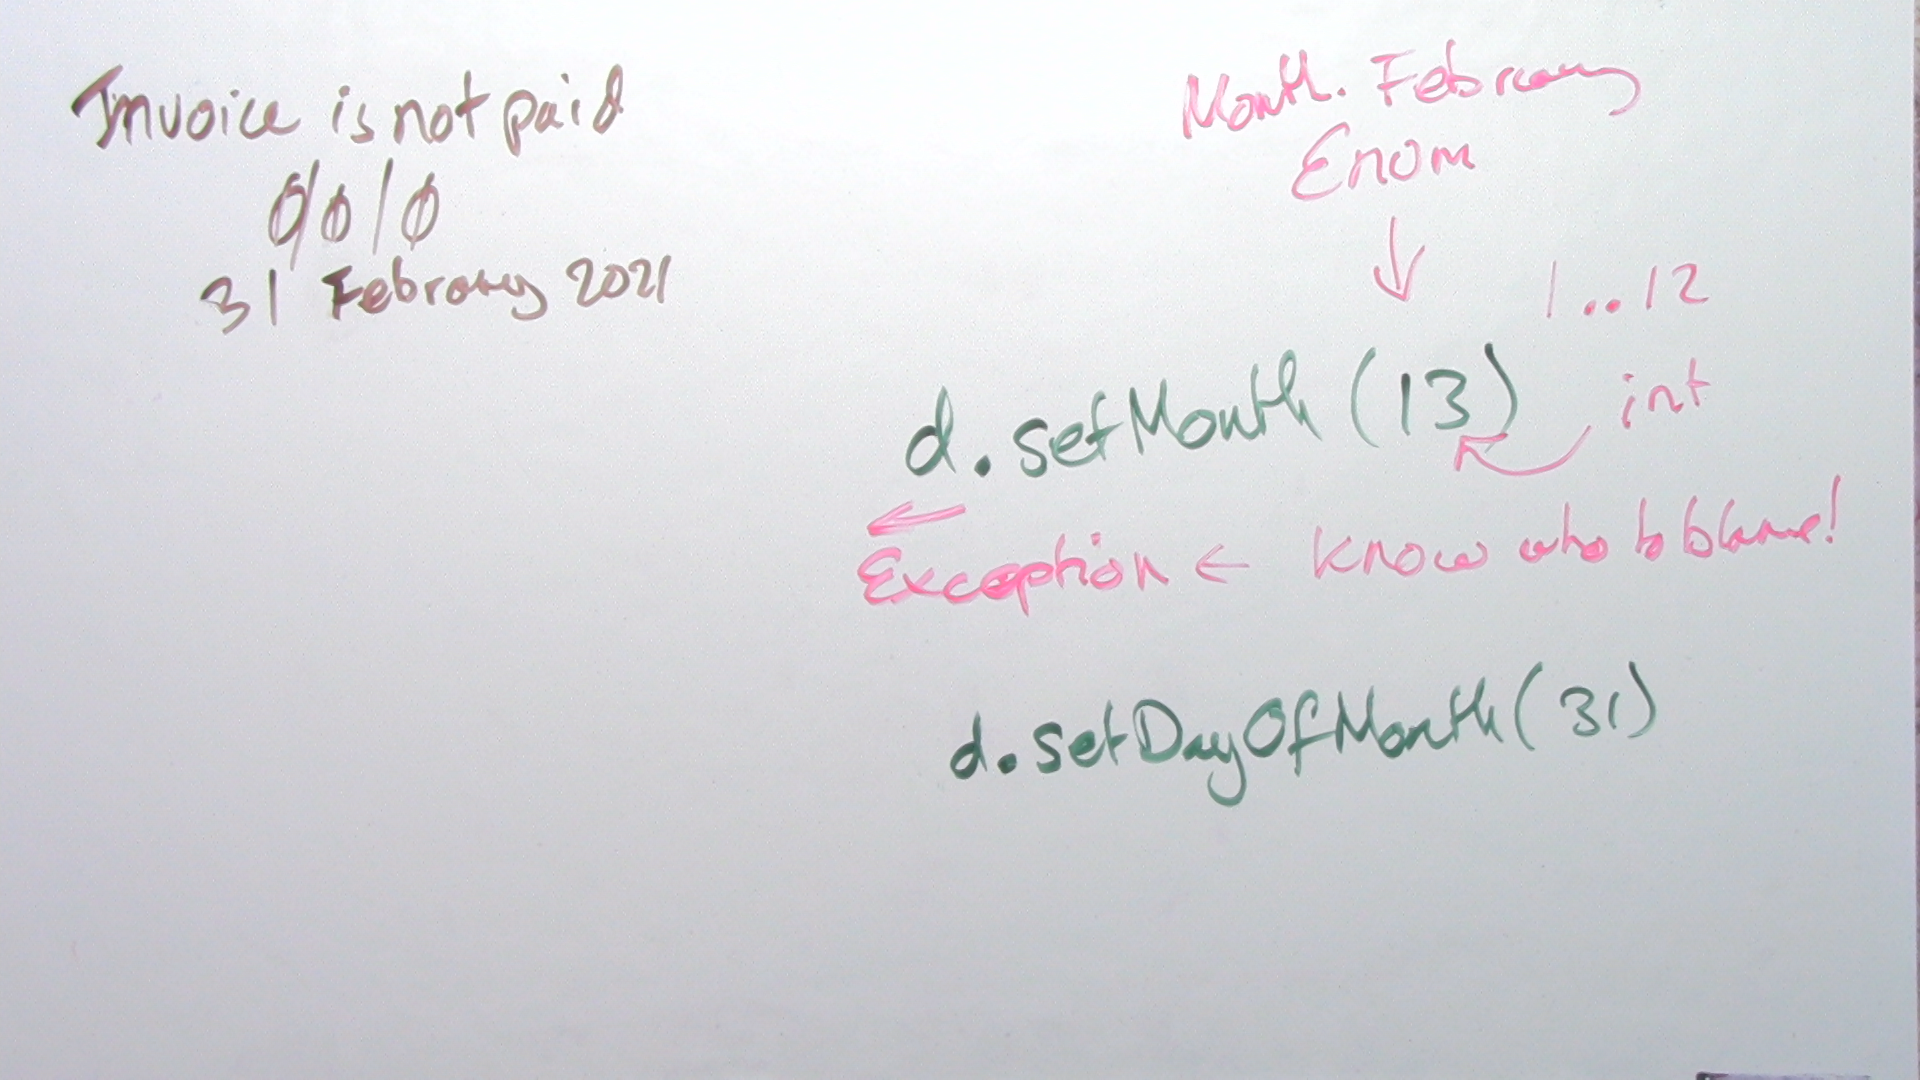 Invoice is not paid
0/0/0
31 February 2021
Month. February
Enum
1..12
int
d.setMonth(13)
Exception ← know who to blame!
d.setDayOfMonth(31)